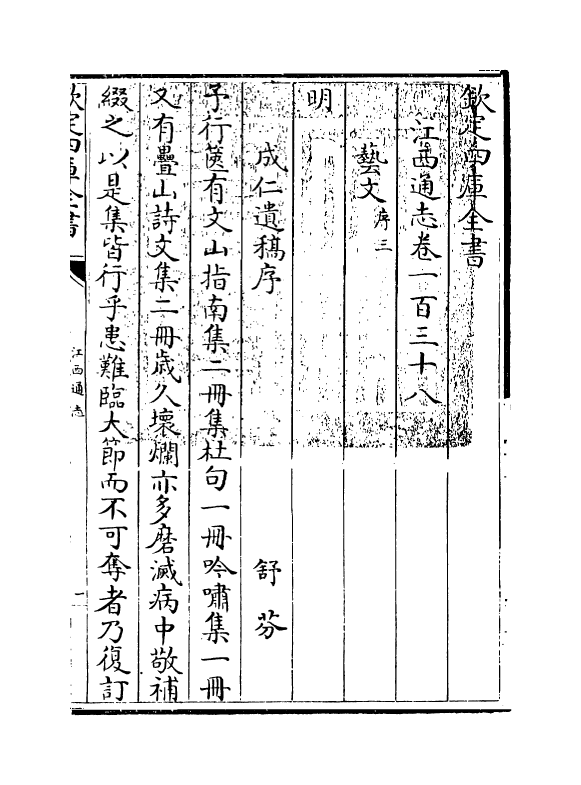 欽定四庫全書
江西通志卷一百三十八
藝文序三
明
成仁遺稿序　舒芬
予行篋有文山指南集二冊集杜句一冊吟嘯集一冊
又有疊山詩文集二冊歲久壞爛亦多磨滅病中敬補
綴之以是集皆行乎患難臨大節而不可奪者乃復訂
欽定四庫全書
江西通志
一